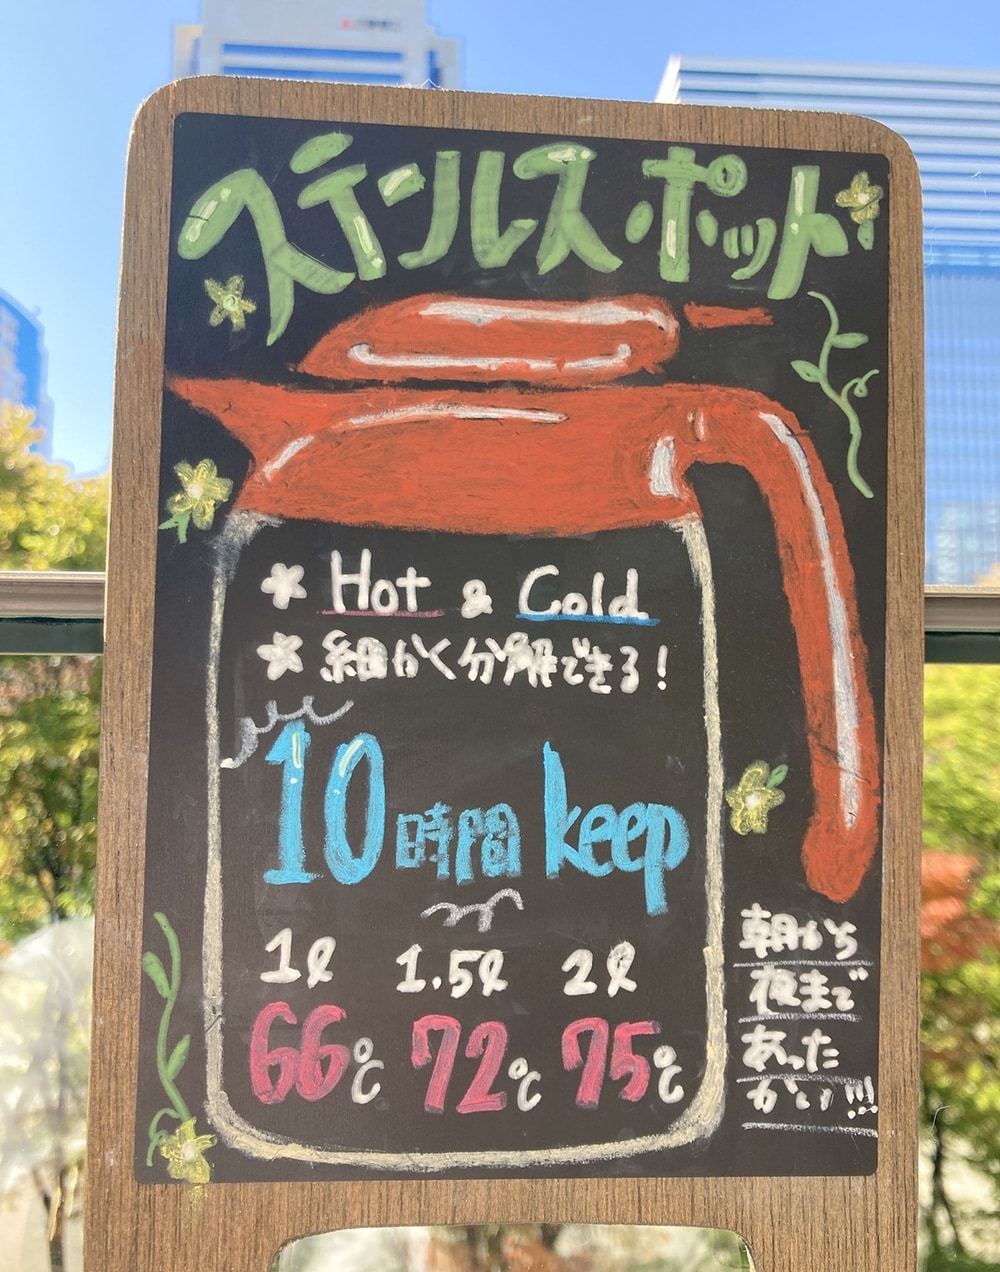 ステンレスポット
Hot & Cold
細かく分解できる!
10時間keep
1ℓ 1.5ℓ 2ℓ
66℃ 72℃ 75℃
朝から
夜まで
あった
かい!!!